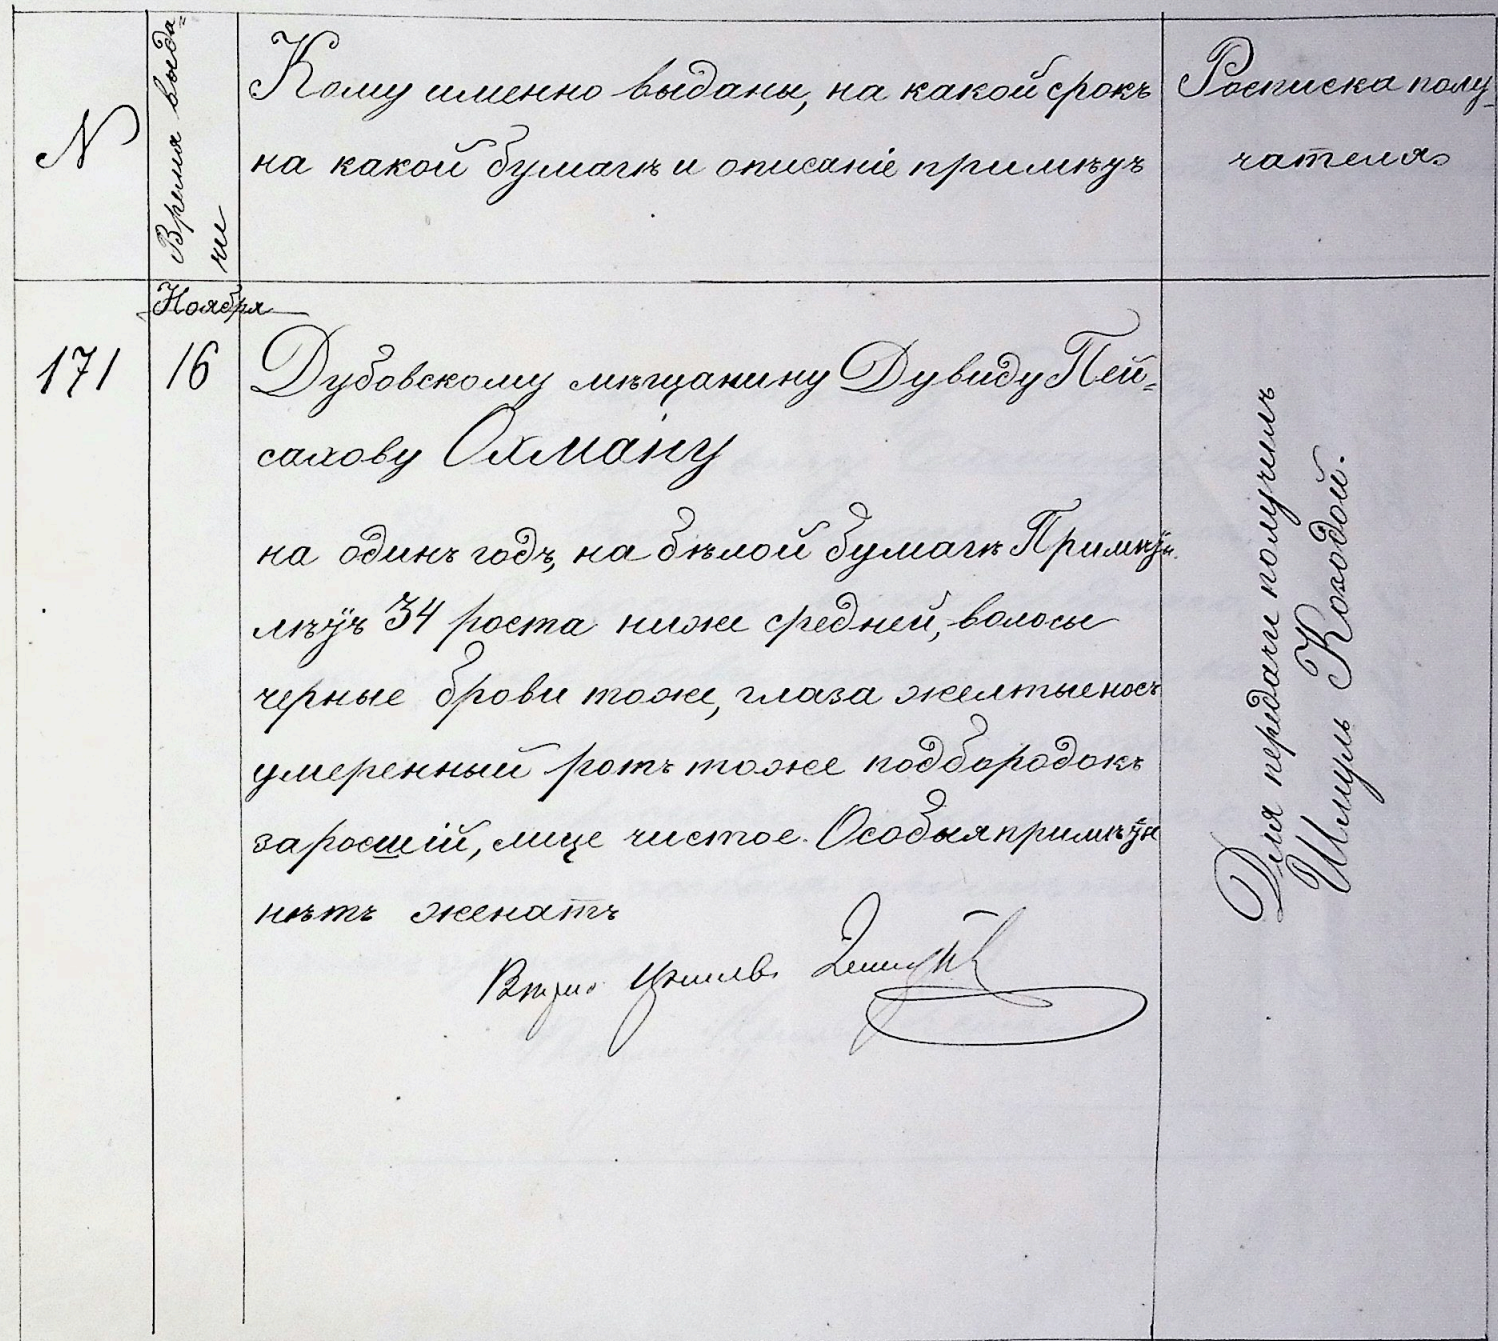 N
Время выда=
чи
Кому именно выданы, на какой срокъ
на какой бумагѣ и описаніе примѣуъ
Росписка полу
чателя
Ноября
171
16
Дубовскому мѣщанину Дувиду Пей=
сахову Охману
на одинъ годъ, на бѣлой бумагѣ Примѣу
лѣуъ 34 роста ниже средней, волосы
черные брови тоже, глаза желтые носъ
умеренный ротъ тоже подбородокъ
заросшій, лице чистое. Особыя примѣу
нѣтъ женатъ
Для передачи получилъ
Шмуль Козодой.